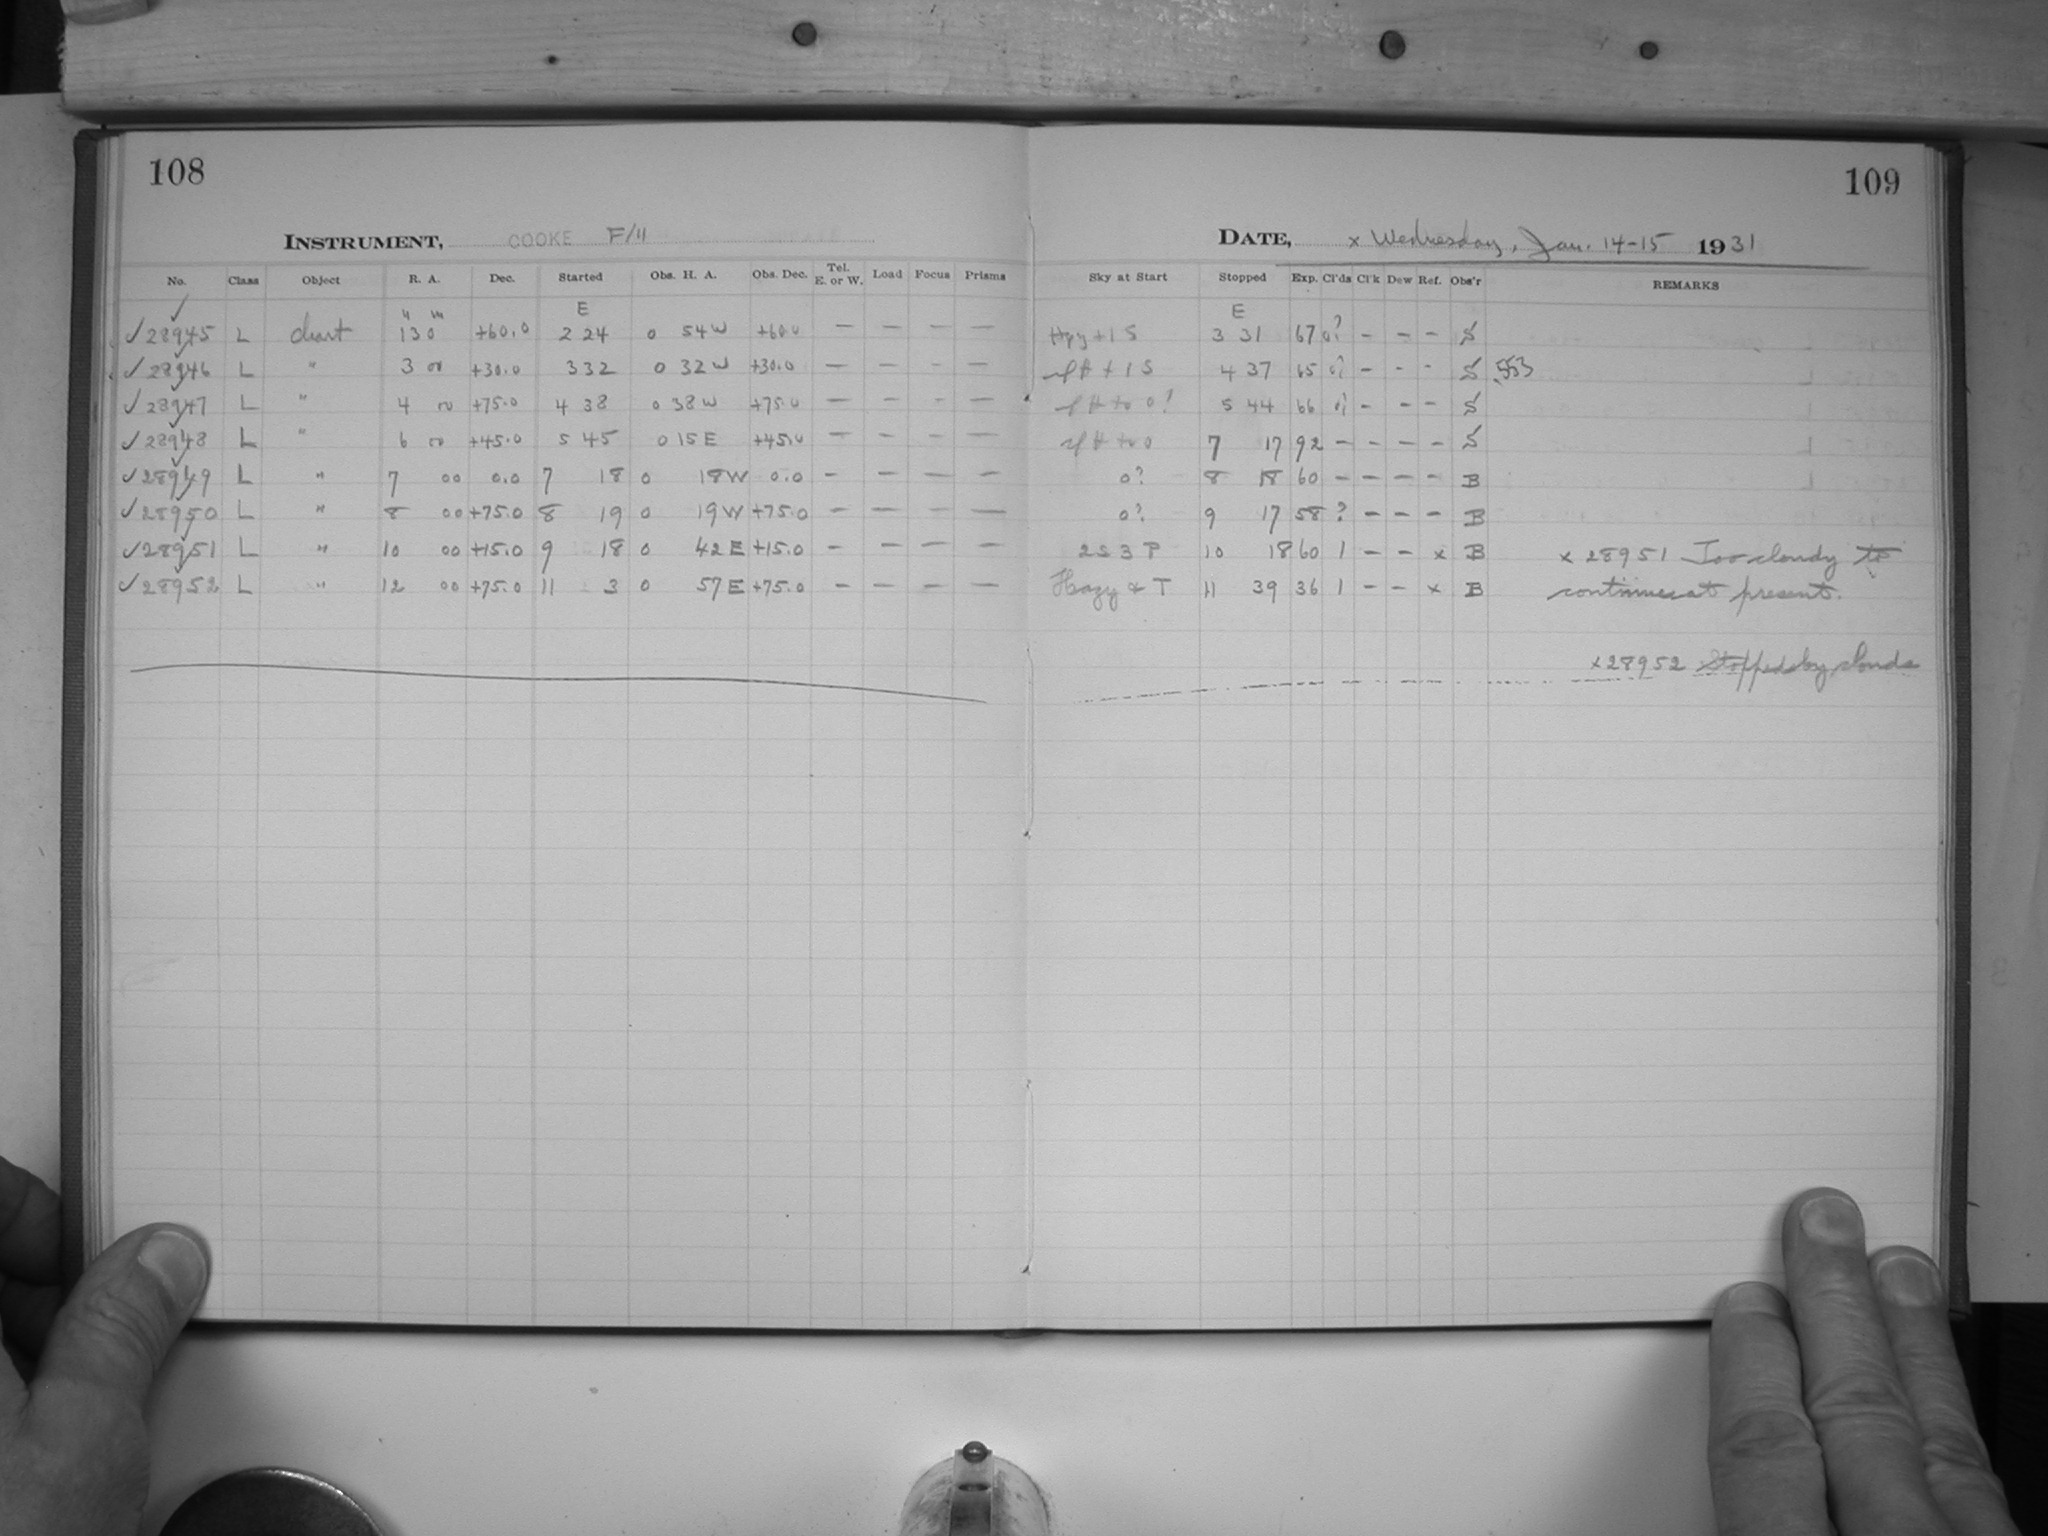 108
109
INSTRUMENT, COOKE F/11
DATE, x Wednesday, Jan. 14-15 1931
No. Class Object R. A. Dec. Started Obs. H. A. Obs. Dec. Tel. E. or W. Load Focus Prisms Sky at Start Stopped Exp. Cl'ds Cl'k Dew Ref. Obs'r REMARKS
✓ h m E E
✓28945 L chart 1 30 +60.0 2 24 0 54 W +60.0 — — — — + 1 S 3 31 67 0? - - - S
✓28946 L " 3 00 +30.0 3 32 0 32 W +30.0 — — - — + 1 S 4 37 65 0? - - - S 553
✓28947 L " 4 00 +75.0 4 38 0 38 W +75.0 — — - — to 0? 5 44 66 0? - - - S
✓28948 L " 6 00 +45.0 5 45 0 15 E +45.0 — — - — to 0 7 17 92 - - - - S
✓28949 L " 7 00 0.0 7 18 0 18 W 0.0 - — — — 0? 8 18 60 - - - - B
✓28950 L " 8 00 +75.0 8 19 0 19 W +75.0 - — — — 0? 9 17 58 ? - - - B
✓28951 L " 10 00 +15.0 9 18 0 42 E +15.0 - — — — 2 S 3 P 10 18 60 1 - - x B x 28951 Too cloudy to
✓28952 L " 12 00 +75.0 11 3 0 57 E +75.0 - — — — Hazy & T 11 39 36 1 - - x B continue at present.
x 28952 Stopped by clouds